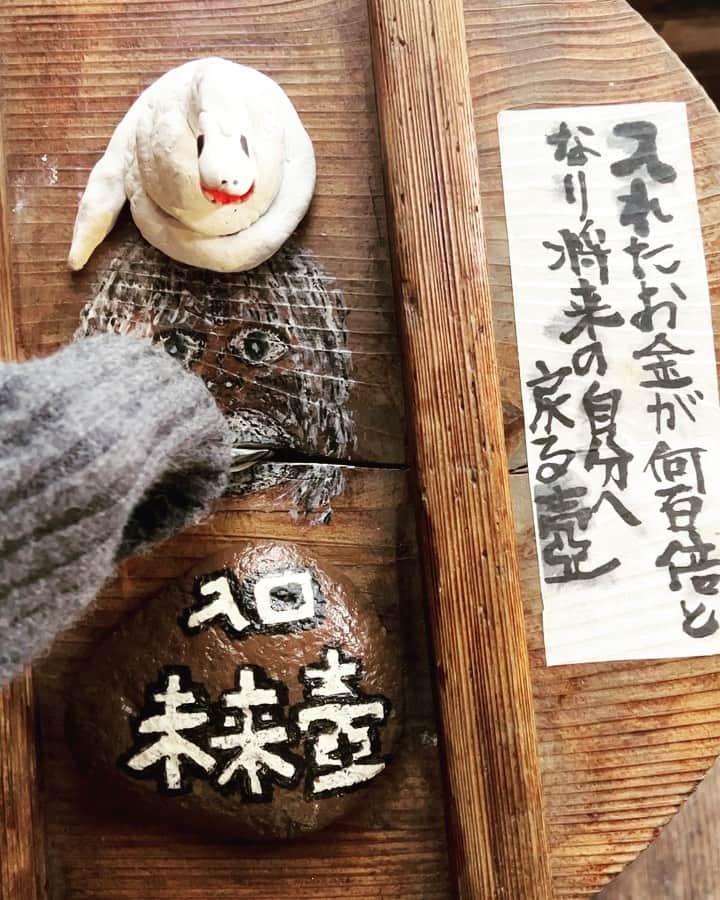 入れたお金が何百倍と
なり将来の自分へ
戻る壺
入口
未来壺